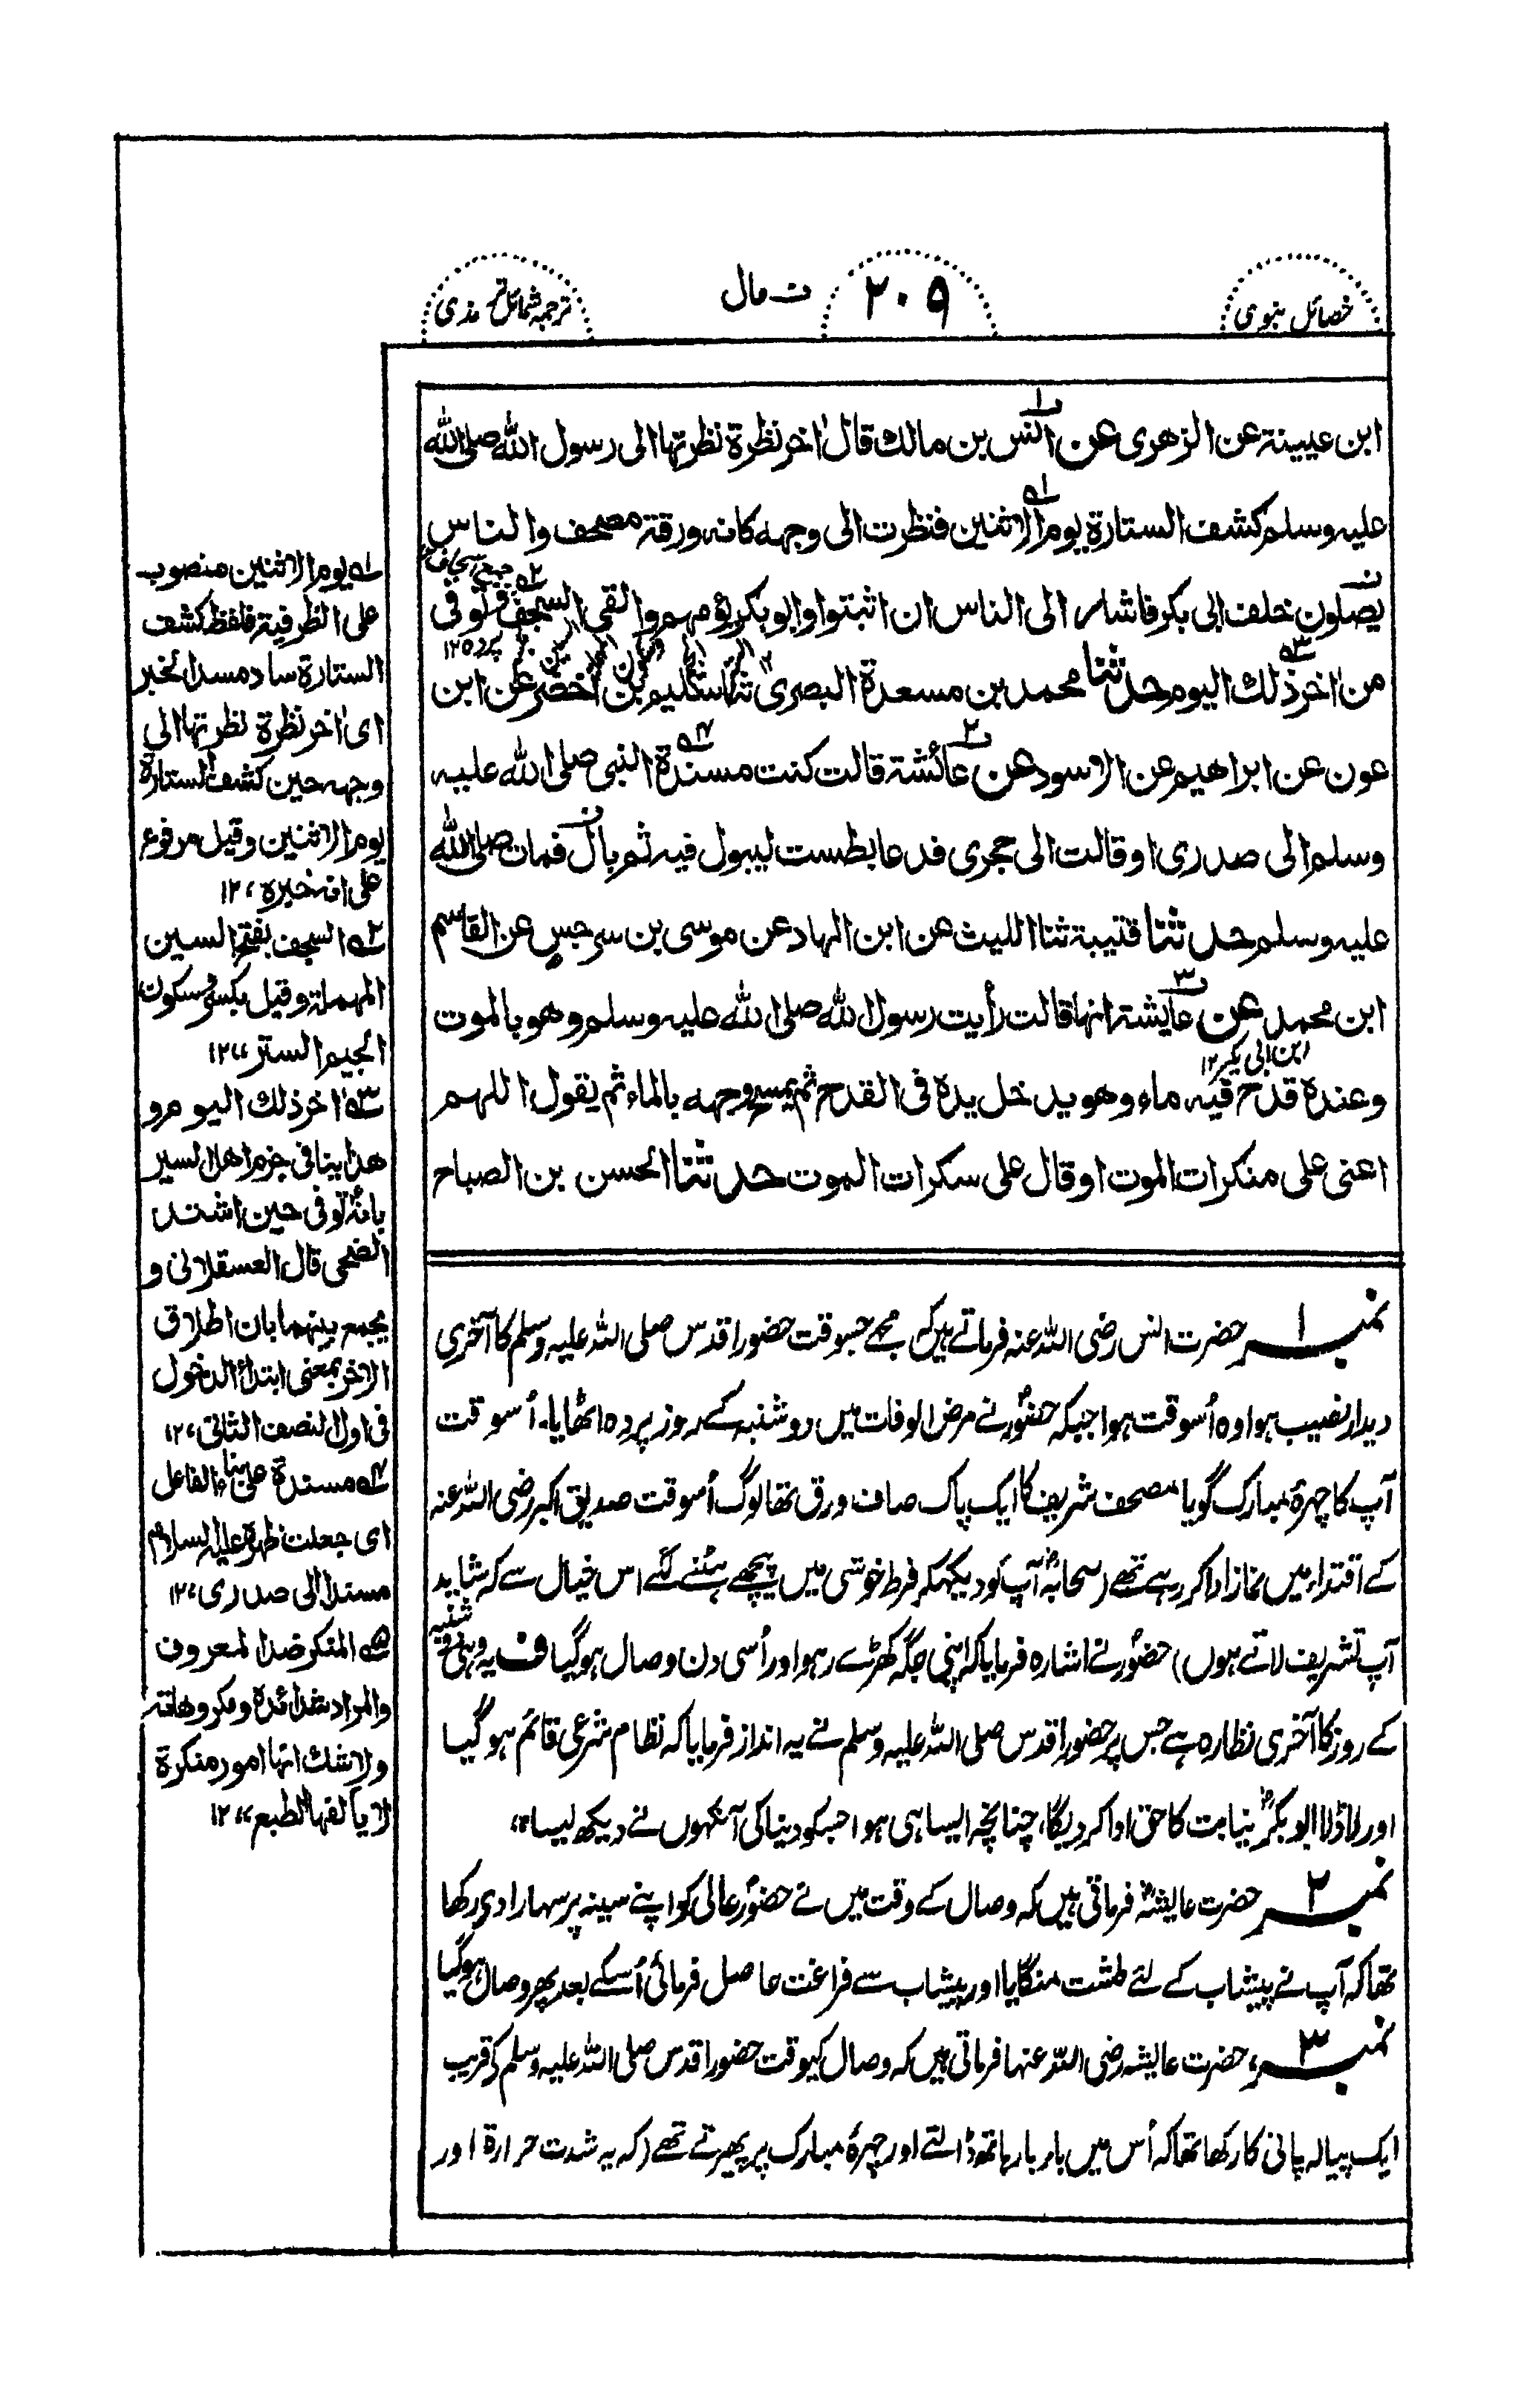 خصائل نبوی
۲۰۹
ن مال
ترجمہ شمائل ترمذی
ابن عیینة عن الزهری عن انس بن مالك قال اٰخر نظرة نظرتها الی رسول الله صلی الله
علیه وسلم كشف الستارة یوم الاثنین فنظرت الی وجهه كانه ورقة مصحف والناس
یصلون خلف ابی بكر فاشار الی الناس ان اثبتوا وابو بكر یؤمهم والقی السجف وتوفی
من اٰخر ذلك الیوم حدثنا محمد بن مسعدة البصری ثنا سلیم بن اخضر عن ابن
عون عن ابراهیم عن الاسود عن عائشة قالت كنت مسندة النبی صلی الله علیه
وسلم الی صدری او قالت الی حجری فدعا بطست لیبول فیه ثم بال فمات صلی الله
علیه وسلم حدثنا قتیبة ثنا اللیث عن ابن الهاد عن موسی بن سرجس عن القاسم
ابن محمد عن عایشة انها قالت رأیت رسول الله صلی الله علیه وسلم وهو بالموت
ابن ابی بكر ۱۲
وعنده قدح فیه ماء وهو یدخل یده فی القدح ثم یمسح وجهه بالماء ثم یقول اللهم
اعنی علی منكرات الموت او قال علی سكرات الموت حدثنا الحسن بن الصباح
نمبر ۱ حضرت انس رضی اللہ عنہ فرماتے ہیں کہ مجھے جسوقت حضور اقدس صلی اللہ علیہ وسلم کا آخری
دیدار نصیب ہوا وہ اُسوقت ہوا جبکہ حضورؐ نے مرض الوفات میں دوشنبہ کے روز پردہ اٹھایا۔ اُسوقت
آپ کا چہرۂ مبارک گویا مصحف شریف کا ایک پاک صاف ورق تھا لوگ اُسوقت صدیق اکبر رضی اللہ عنہ
کے اقتداء میں نماز ادا کر رہے تھے (صحابہؓ آپ کو دیکھکر فرط خوشی میں پیچھے ہٹنے لگے اس خیال سے کہ شاید
آپ تشریف لاتے ہوں) حضورؐ نے اشارہ فرمایا کہ اپنی جگہ کھڑے رہو اور اُسی دن وصال ہوگیا ف یہ وہی دوشنبہ
کے روز کا آخری نظارہ ہے جس پر حضور اقدس صلی اللہ علیہ وسلم نے یہ انداز فرمایا کہ نظام شرعی قائم ہو گیا
اور لاڈلا ابوبکرؓ نیابت کا حق ادا کر دیگا، چنانچہ ایسا ہی ہوا جسکو دنیا کی آنکھوں نے دیکھ لیا۔
نمبر ۲ حضرت عایشہؓ فرماتی ہیں کہ وصال کے وقت میں نے حضور عالی کو اپنے سینہ پر سہارا دی رکھا
تھا کہ آپ نے پیشاب کے لئے طشت منگایا اور پیشاب سے فراغت حاصل فرمائی اُسکے بعد پھر وصال ہوگیا
نمبر ۳، حضرت عایشہ رضی اللہ عنہا فرماتی ہیں کہ وصال کیوقت حضور اقدس صلی اللہ علیہ وسلم کے قریب
ایک پیالہ پانی کا رکھا تھا کہ اُس میں بار بار ہاتھ ڈالتے اور چہرۂ مبارک پر پھیرتے تھے (کہ یہ شدت حرارة اور
۱ یوم الاثنین منصوب
علی الظرفیة فلفظ كشف
الستارة ساد مسد الخبر
ای اٰخر نظرة نظرتها الی
وجهه حین كشف الستارة
یوم الاثنین وقیل مرفوع
علی انه خبره، ۱۲
۲ السجف بفتح السین
المهملة وقیل بكسر وسكون
الجیم الستر ،،۱۲
۳ اٰخر ذلك الیوم و
هذا ینافی جزم اهل السیر
بانه توفی حین اشتد
الضحی قال العسقلانی و
یجمع بینهما بان اطلاق
الاٰخر بمعنی ابتداء الدخول
فی اول النصف الثانی، ۱۲
۴ مسندة علی بناء الفاعل
ای جعلت ظهره علیه السلام
مستندا الی صدری، ۱۲
۵ المنكر ضد المعروف
والمراد شدائده ومكروهاته
ولا شك انها امور منكرة
لا یألفها الطبع ،،۱۲